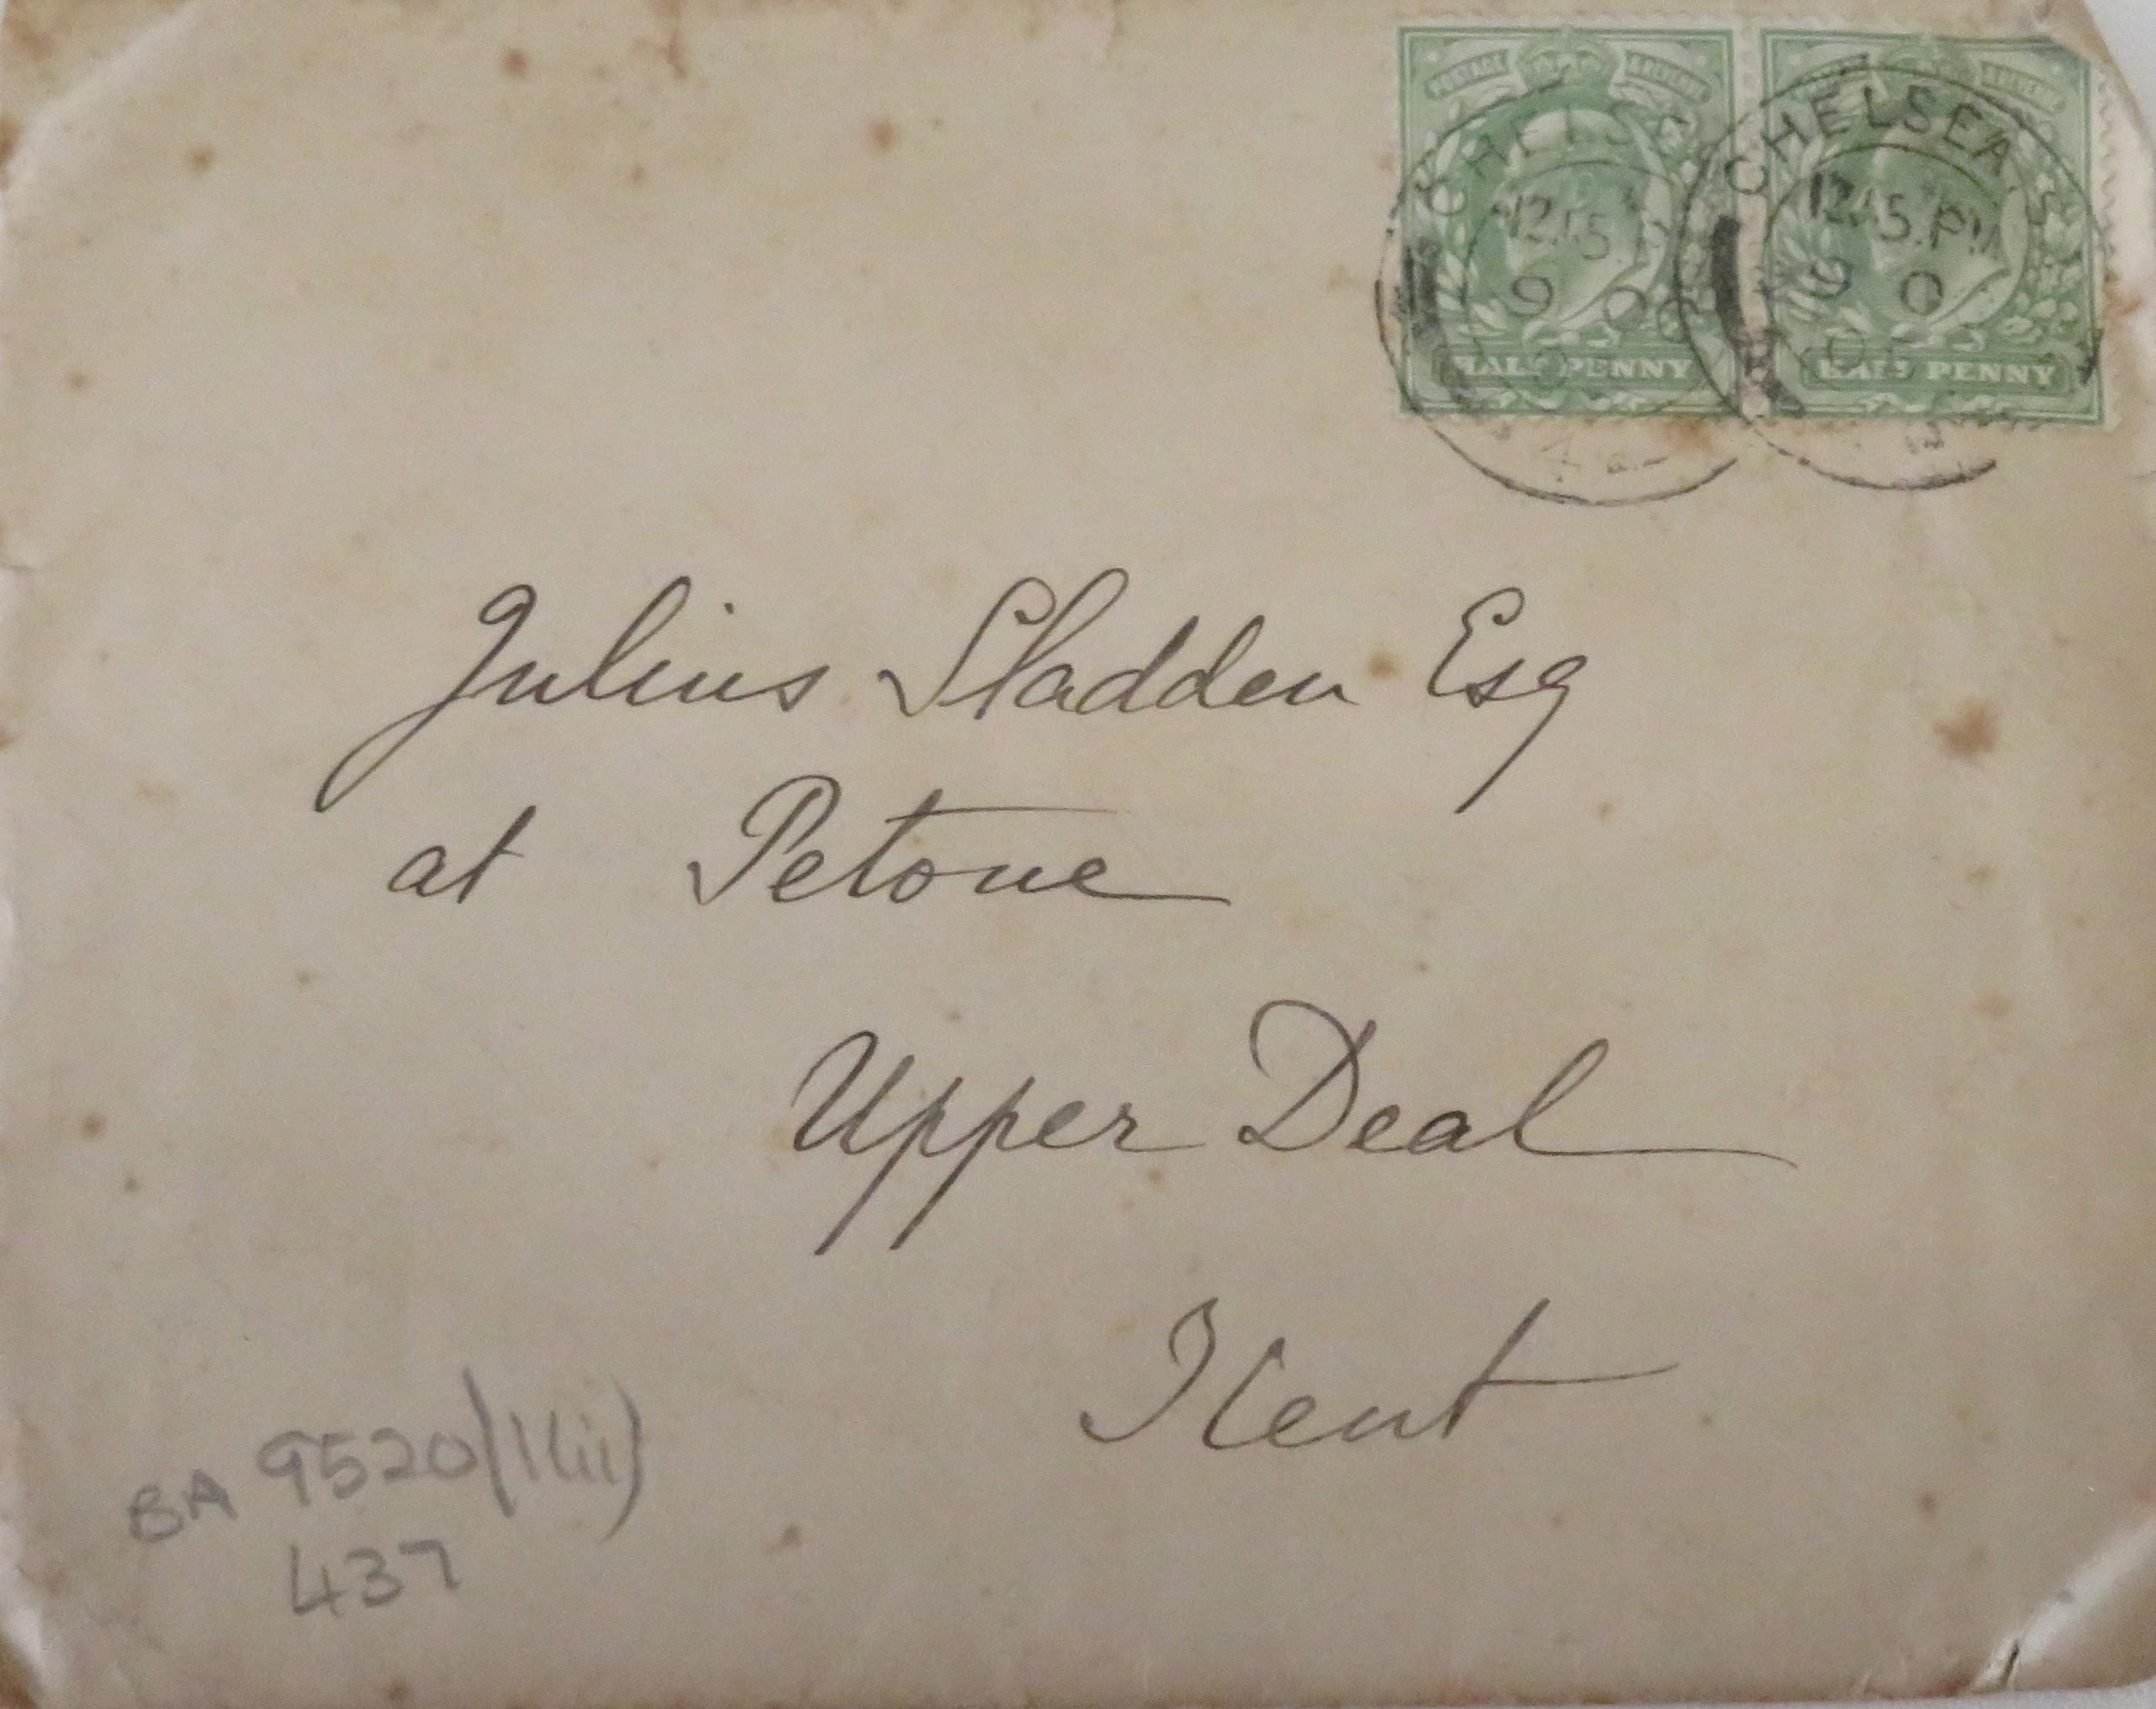 POSTAGE & REVENUE POSTAGE & REVENUE
CHELSEA CHELSEA S
12.15 12.15.P
9 OC 9 O
HALF PENNY HALF PENNY
Julius Sladden Esq
at Petone
Upper Deal
Kent
BA 9520
437